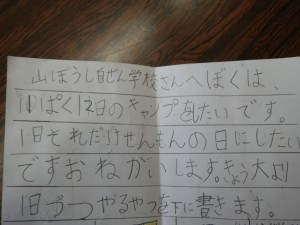 山ぼうし自ぜん学校さんへぼくは、
11ぱく12日のキャンプをしたいです。
1日それだけせんもんの日にしたい
ですおねがいします。きょう大より
1日づつやるやつを下に書きます。